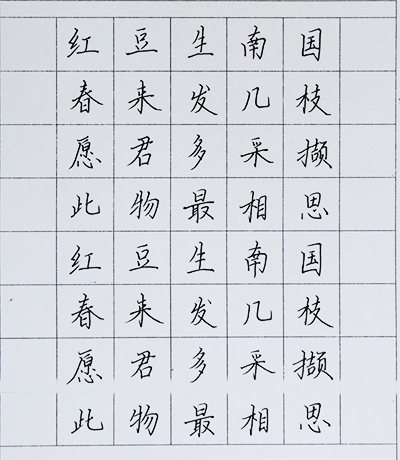 红豆生南国
春来发几枝
愿君多采撷
此物最相思
红豆生南国
春来发几枝
愿君多采撷
此物最相思